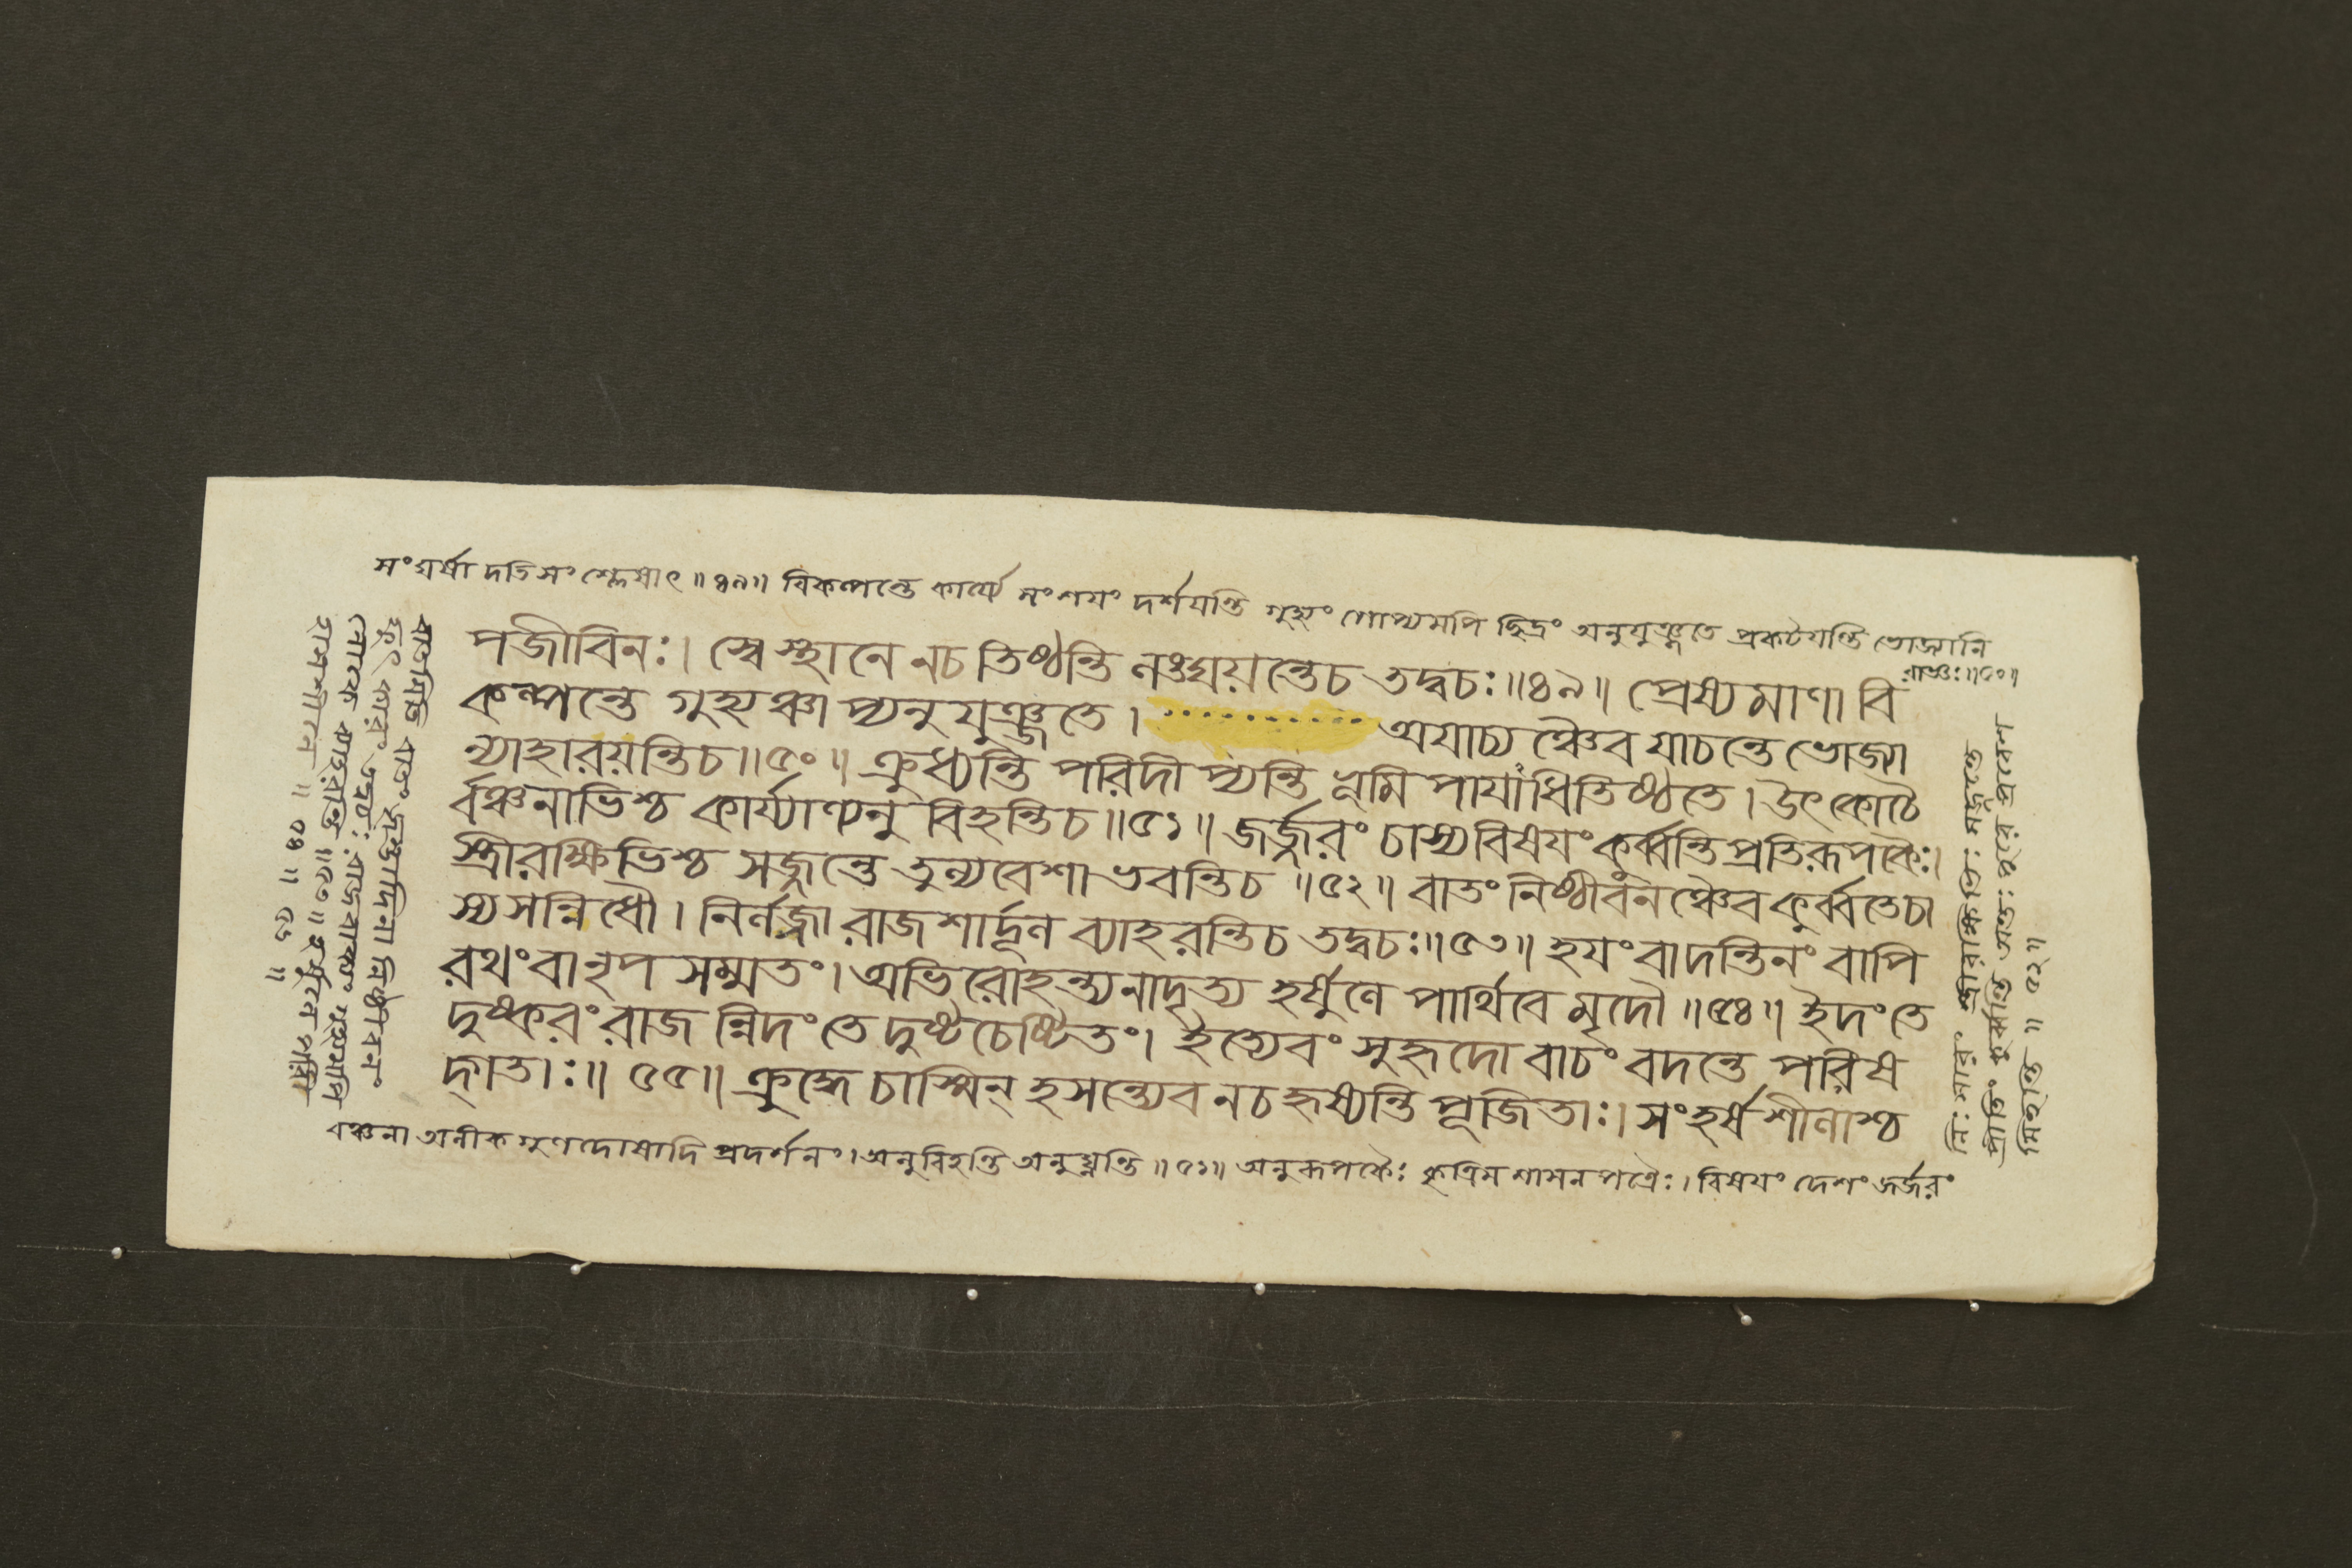 সংঘর্ষা দতিসংশ্লেষাৎ ॥ ৪৯॥ বিকল্পন্তে কার্য্যে সংশয়ং দর্শয়ন্তি গুহ্যং গোপ্যমপি ছিদ্রং অনুযুঞ্জতে প্রকটয়ন্তি ভোজ্যানি
রাজ্ঞঃ॥৫০॥
পজীবিনঃ। স্বে স্থানে নচ তিষ্ঠন্তি লঙ্ঘয়ন্তেচ তদ্বচঃ॥৪৯॥ প্রেষ্যমাণা বি
কল্পন্তে গুহ্যঞ্চা প্যনু যুঞ্জতে। অযাচ্যঞ্চৈব যাচন্তে ভোজ্যা
ন্যাহারয়ন্তিচ॥৫০॥ ক্রুধ্যন্তি পরিদীপ্যন্তি ভূমি পাযাধিতিষ্ঠতে। উৎকোচৈ
র্বঞ্চনাভিশ্চ কার্য্যাণ্যনু বিহন্তিচ॥৫১॥ জর্জ্জরং চাস্যবিষয়ং কুর্ব্বন্তিপ্রতিরূপকৈঃ।
স্ত্রীরক্ষিভিশ্চ সজ্জন্তে তুল্যবেশা ভবন্তিচ ॥৫২॥ বাতং নিষ্ঠীবনঞ্চৈব কুর্ব্বতেচা
স্যসন্নিধৌ। নির্লজ্জা রাজশার্দ্দূল ব্যাহরন্তিচ তদ্বচঃ॥৫৩॥ হয়ংবা দন্তিনং বাপি
রথংবা নৃপ সম্মতং। অভিরোহন্ত্যনাদৃত্য হর্ষুলে পার্থিবে মৃদৌ ॥৫৪॥ ইদংতে
দুষ্করং রাজন্নিদং তে দুষ্টচেষ্টিতং। ইত্যেবং সুহৃদো বাচং বদন্তে পরিষ
দ্গতাঃ॥ ৫৫॥ ক্রুদ্ধে চাস্মিন্ হসন্ত্যেব নচ হৃষ্যন্তি পূজিতাঃ। সংহর্ষশীলাশ্চ
বঞ্চনা অলীকগুণদোষাদি প্রদর্শনং। অনুবিহন্তি অনুঘ্নন্তি ॥৫১॥ অনুরূপকৈঃ কৃত্রিম শাসনপত্রৈঃ। বিষয়ং দেশং জর্জ্জরং
নিঃসারং স্ত্রীরক্ষিভিঃ সজ্জন্তে
প্রীতিং কুর্ব্বন্তি
॥ ৫২॥